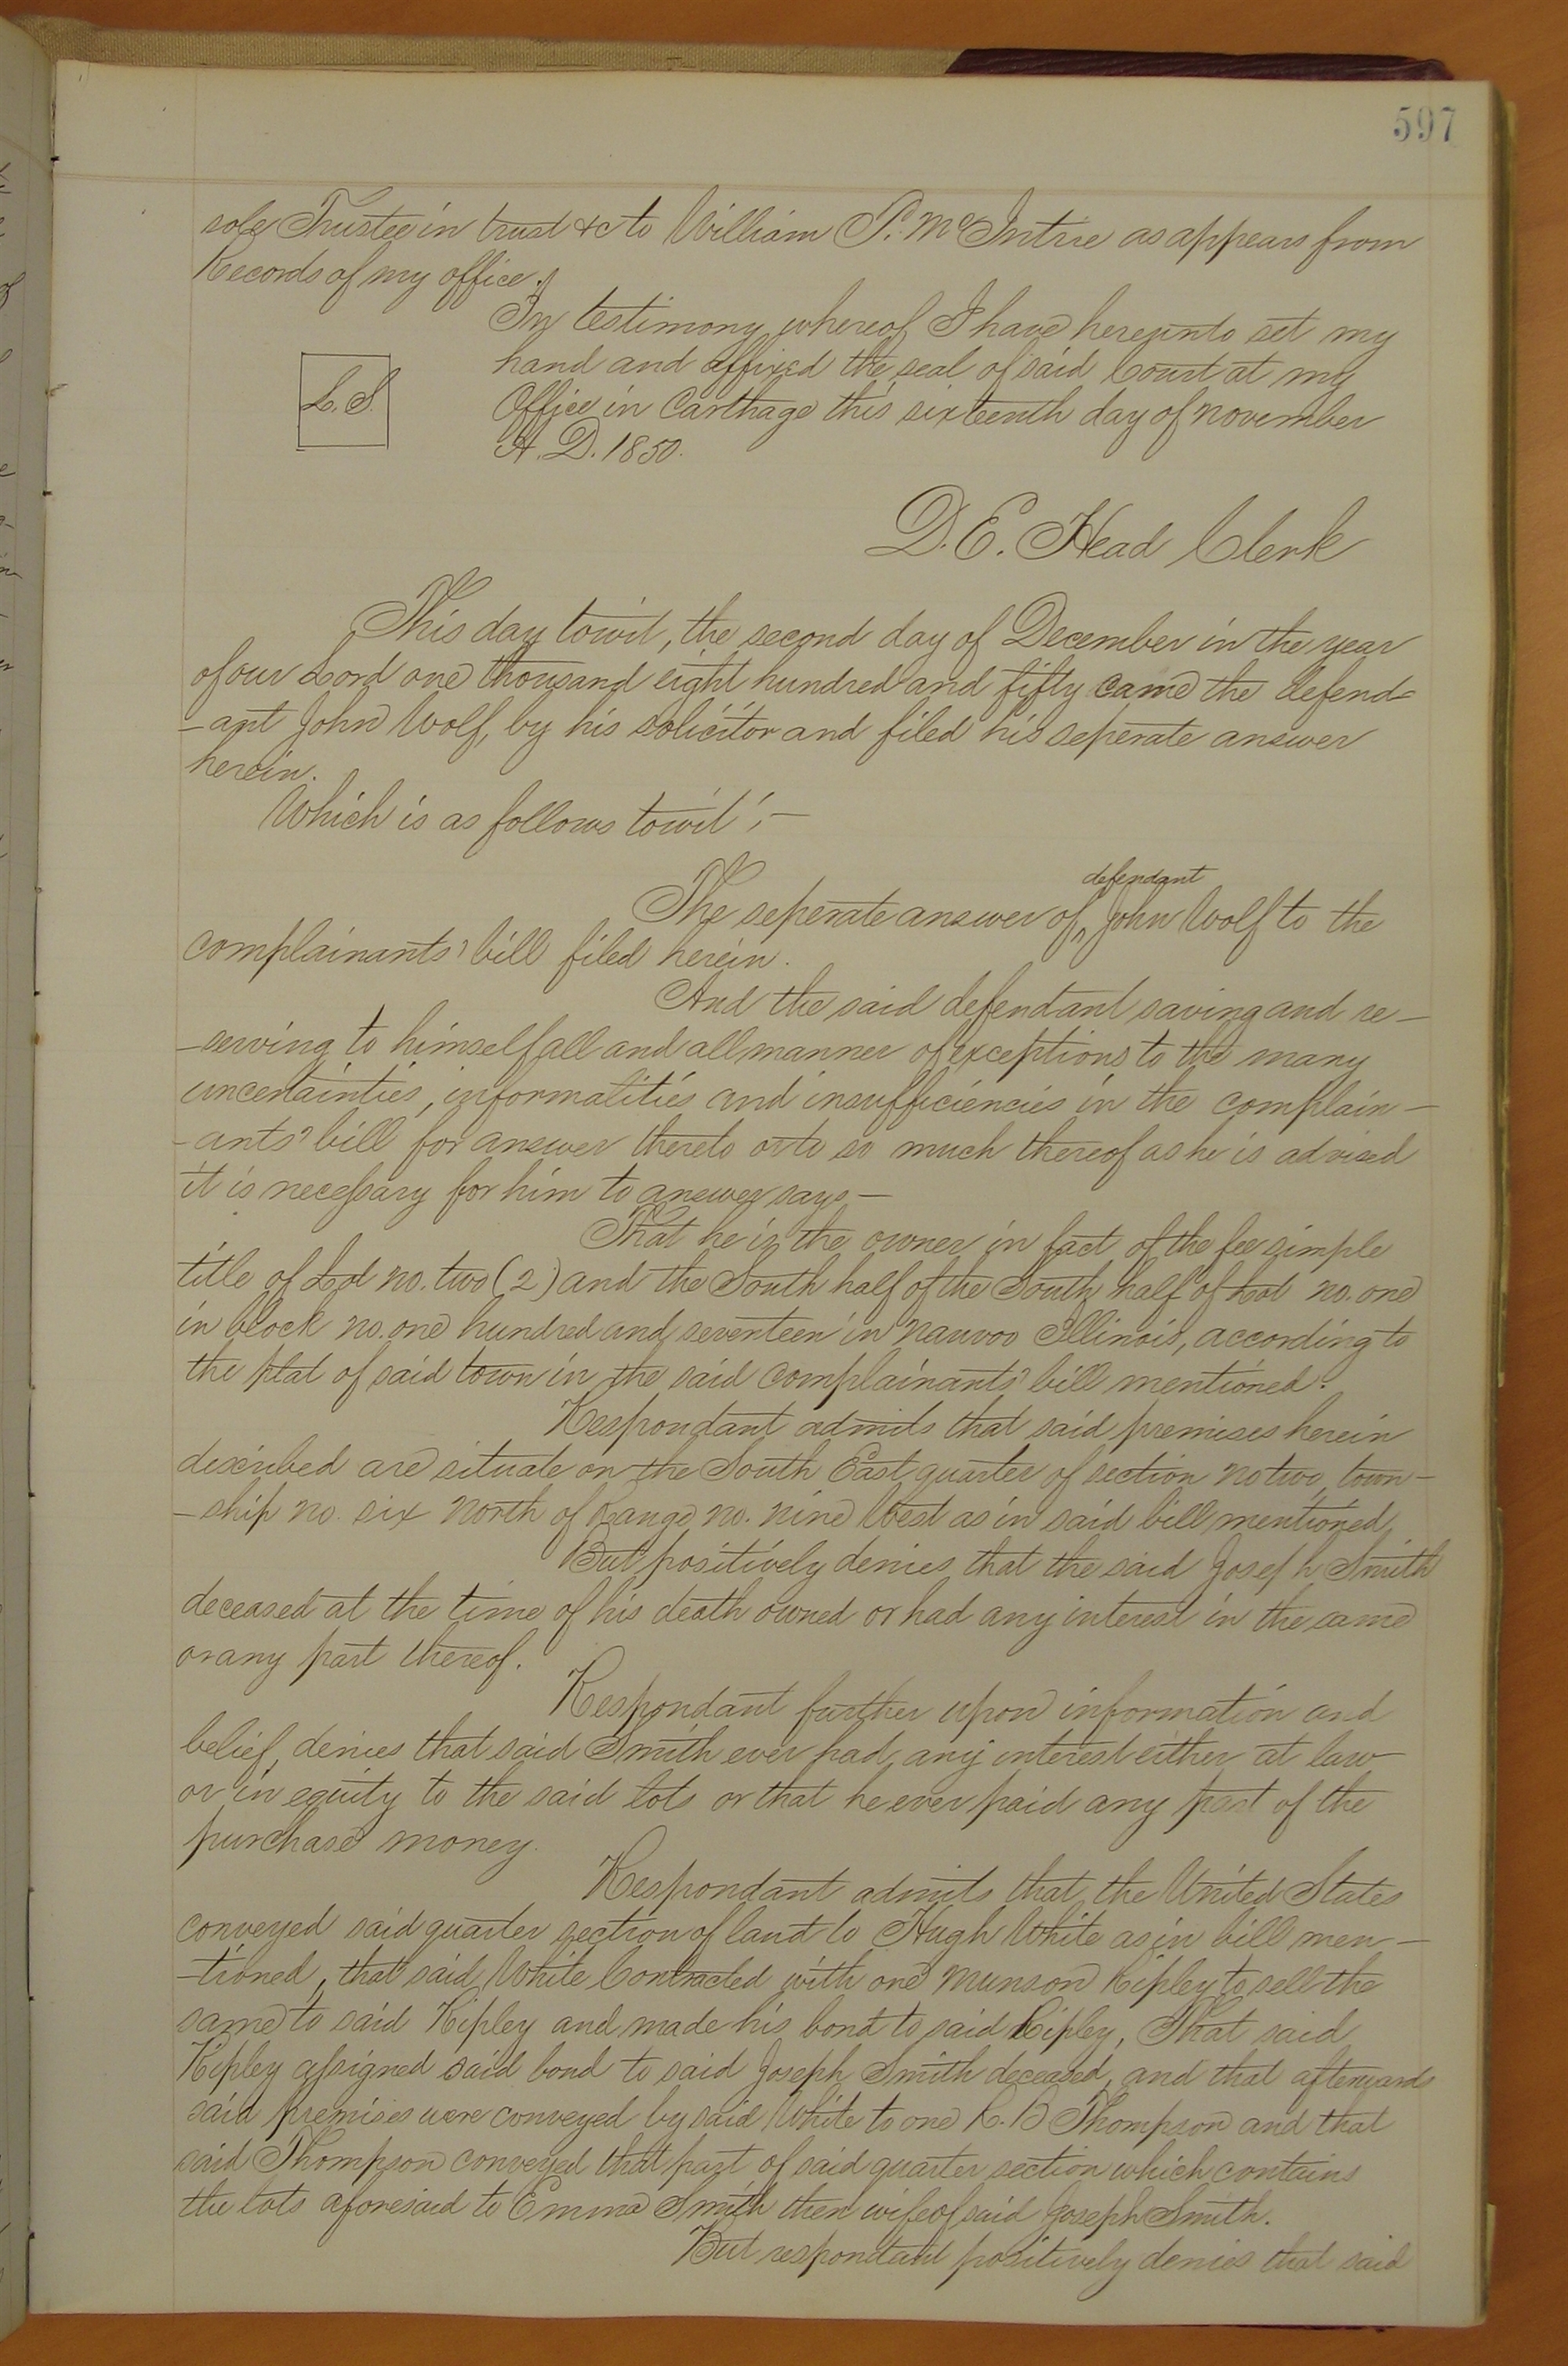 597
sole Trustee in trust &c to William P. McIntire as appears from
Records of my office.
In testimony whereof I have hereunto set my
hand and affixed the seal of said Court at my
L. S.
Office in Carthage this sixteenth day of november
A. D. 1850.
D. E. Head Clerk
This day towit, the second day of December in the year
of our Lord one thousand eight hundred and fifty came the defend-
-ant John Wolf, by his solicitor and filed his seperate answer
herein.
Which is as follows towit;—
defendant
The seperate answer of ^ John Wolf to the
complainants' bill filed herein.
And the said defendant saving and re-
-serving to himself all and all manner of exceptions to the many
uncertainties, informalities and insufficiencies in the complain-
-ants' bill for answer thereto or to so much thereof as he is advised
it is necessary for him to answer says—
That he is the owner in fact of the fee simple
title of Lot no. two (2) and the South half of the South half of Lot no. one
in block no. one hundred and seventeen in nauvoo Illinois, according to
the plat of said town in the said complainants' bill mentioned.
Respondant admits that said premises herein
described are situate on the South East quarter of section no two, town-
-ship no. six north of Range no. nine West as in said bill mentioned,
But positively denies that the said Joseph Smith
deceased at the time of his death owned or had any interest in the same
or any part thereof.
Respondant further upon information and
belief, denies that said Smith ever had any interest either at law
or in equity to the said lots or that he ever paid any part of the
purchase money.
Respondant admits that the United States
conveyed said quarter section of land to Hugh White as in bill men-
-tioned, that said White Contracted with one munson Ripley to sell the
same to said Ripley and made his bond to said Ripley, That said
Ripley assigned said bond to said Joseph Smith deceased, and that afterwards
said premises were conveyed by said White to one R. B Thompson and that
said Thompson conveyed that part of said quarter section which contains
the lots aforesaid to Emma Smith then wife of said Joseph Smith.
But respondant positively denies that said